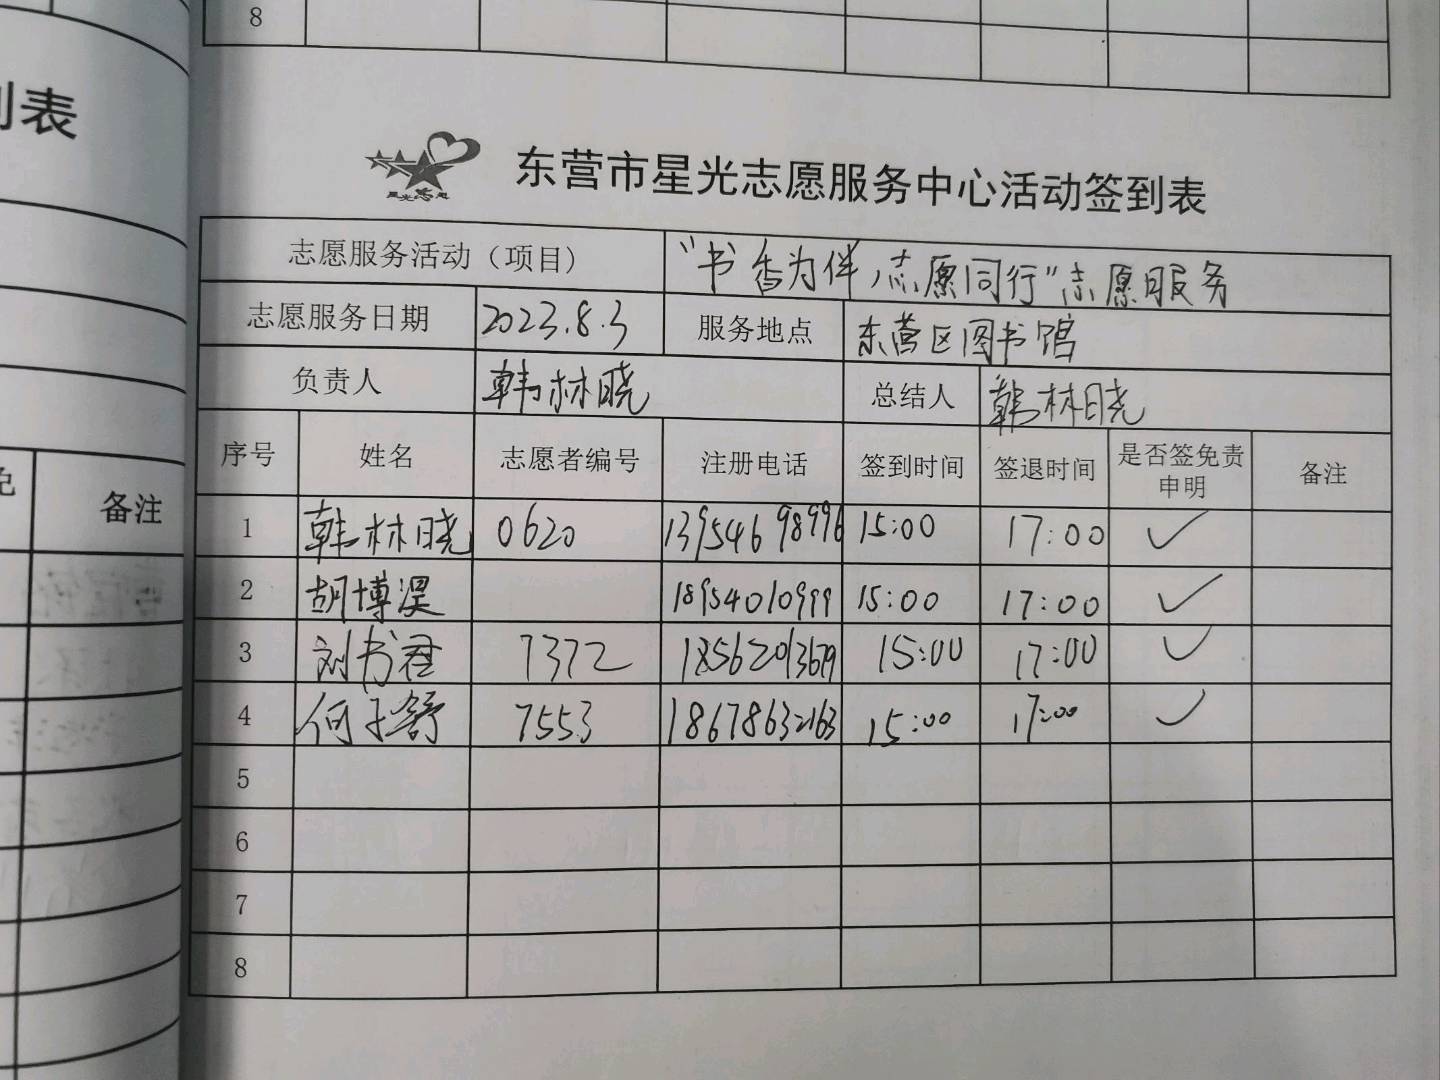 8
列表
备注
星光志愿
东营市星光志愿服务中心活动签到表
志愿服务活动（项目） “书香为伴，志愿同行”志愿服务
志愿服务日期 2023.8.3 服务地点 东营区图书馆
负责人 韩林晓 总结人 韩林晓
序号 姓名 志愿者编号 注册电话 签到时间 签退时间 是否签免责申明 备注
1 韩林晓 0620 13954698996 15:00 17:00 ✓
2 胡博淏 18954010999 15:00 17:00 ✓
3 刘书君 7372 18562013679 15:00 17:00 ✓
4 何子舒 7553 18678632163 15:00 17:00 ✓
5
6
7
8